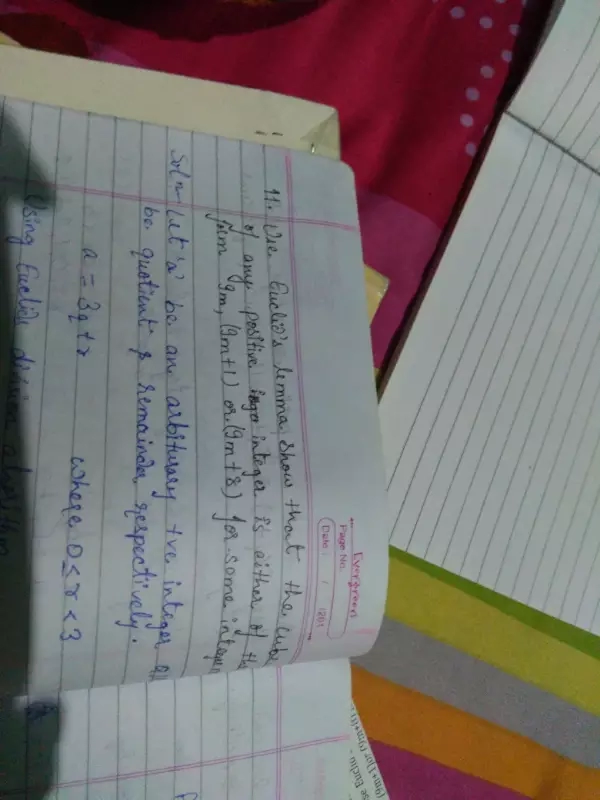 Evergreen
Page No.
Date: / /201
11. Use Euclid's lemma show that the cube
of any positive integer is either of the
form 9m, (9m+1) or (9m+8) for some integer
Soln Let 'a' be an arbiturary +ve integer
be quotient & remainder respectively.
a = 3q+r where 0≤r<3
Using Euclid's division algorithm
(9m+1) or (9m+8)